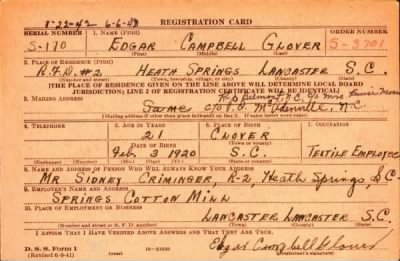 8-22-42 6-6-43 REGISTRATION CARD
SERIAL NUMBER 1. NAME (Print) ORDER NUMBER
S-170 EDGAR CAMPBELL GLOVER S-3701
(First) (Middle) (Last)
2. PLACE OF RESIDENCE (Print)
R.F.D. #2 HEATH SPRINGS LANCASTER S.C.
(Number and street) (Town) (County) (State)
[THE PLACE OF RESIDENCE GIVEN ON THE LINE ABOVE WILL DETERMINE LOCAL BOARD
JURISDICTION; LINE 2 OF REGISTRATION CERTIFICATE WILL BE IDENTICAL]
3. MAILING ADDRESS
Same
[Mailing address if other than place indicated on line 2. If same insert word same]
4. TELEPHONE 5. AGE IN YEARS 6. PLACE OF BIRTH 7. OCCUPATION
21 CLOVER
DATE OF BIRTH
Feb. 3 1920 S.C. TEXTILE EMPLOYEE
(Exchange) (Number) (Mo.) (Day) (Yr.) (State or country)
8. NAME AND ADDRESS OF PERSON WHO WILL ALWAYS KNOW YOUR ADDRESS
MR SIDNEY CRIMINGER, R-2, Heath Springs, S.C.
9. EMPLOYER'S NAME AND ADDRESS
SPRINGS COTTON MILL
10. PLACE OF EMPLOYMENT OR BUSINESS
LANCASTER LANCASTER S.C.
(Number and street or R. F. D. number) (Town) (County) (State)
I AFFIRM THAT I HAVE VERIFIED ABOVE ANSWERS AND THAT THEY ARE TRUE.
D. S. S. Form 1
(Revised 6-9-41) (over) Edgar Campbell Glover
(Registrant's signature)